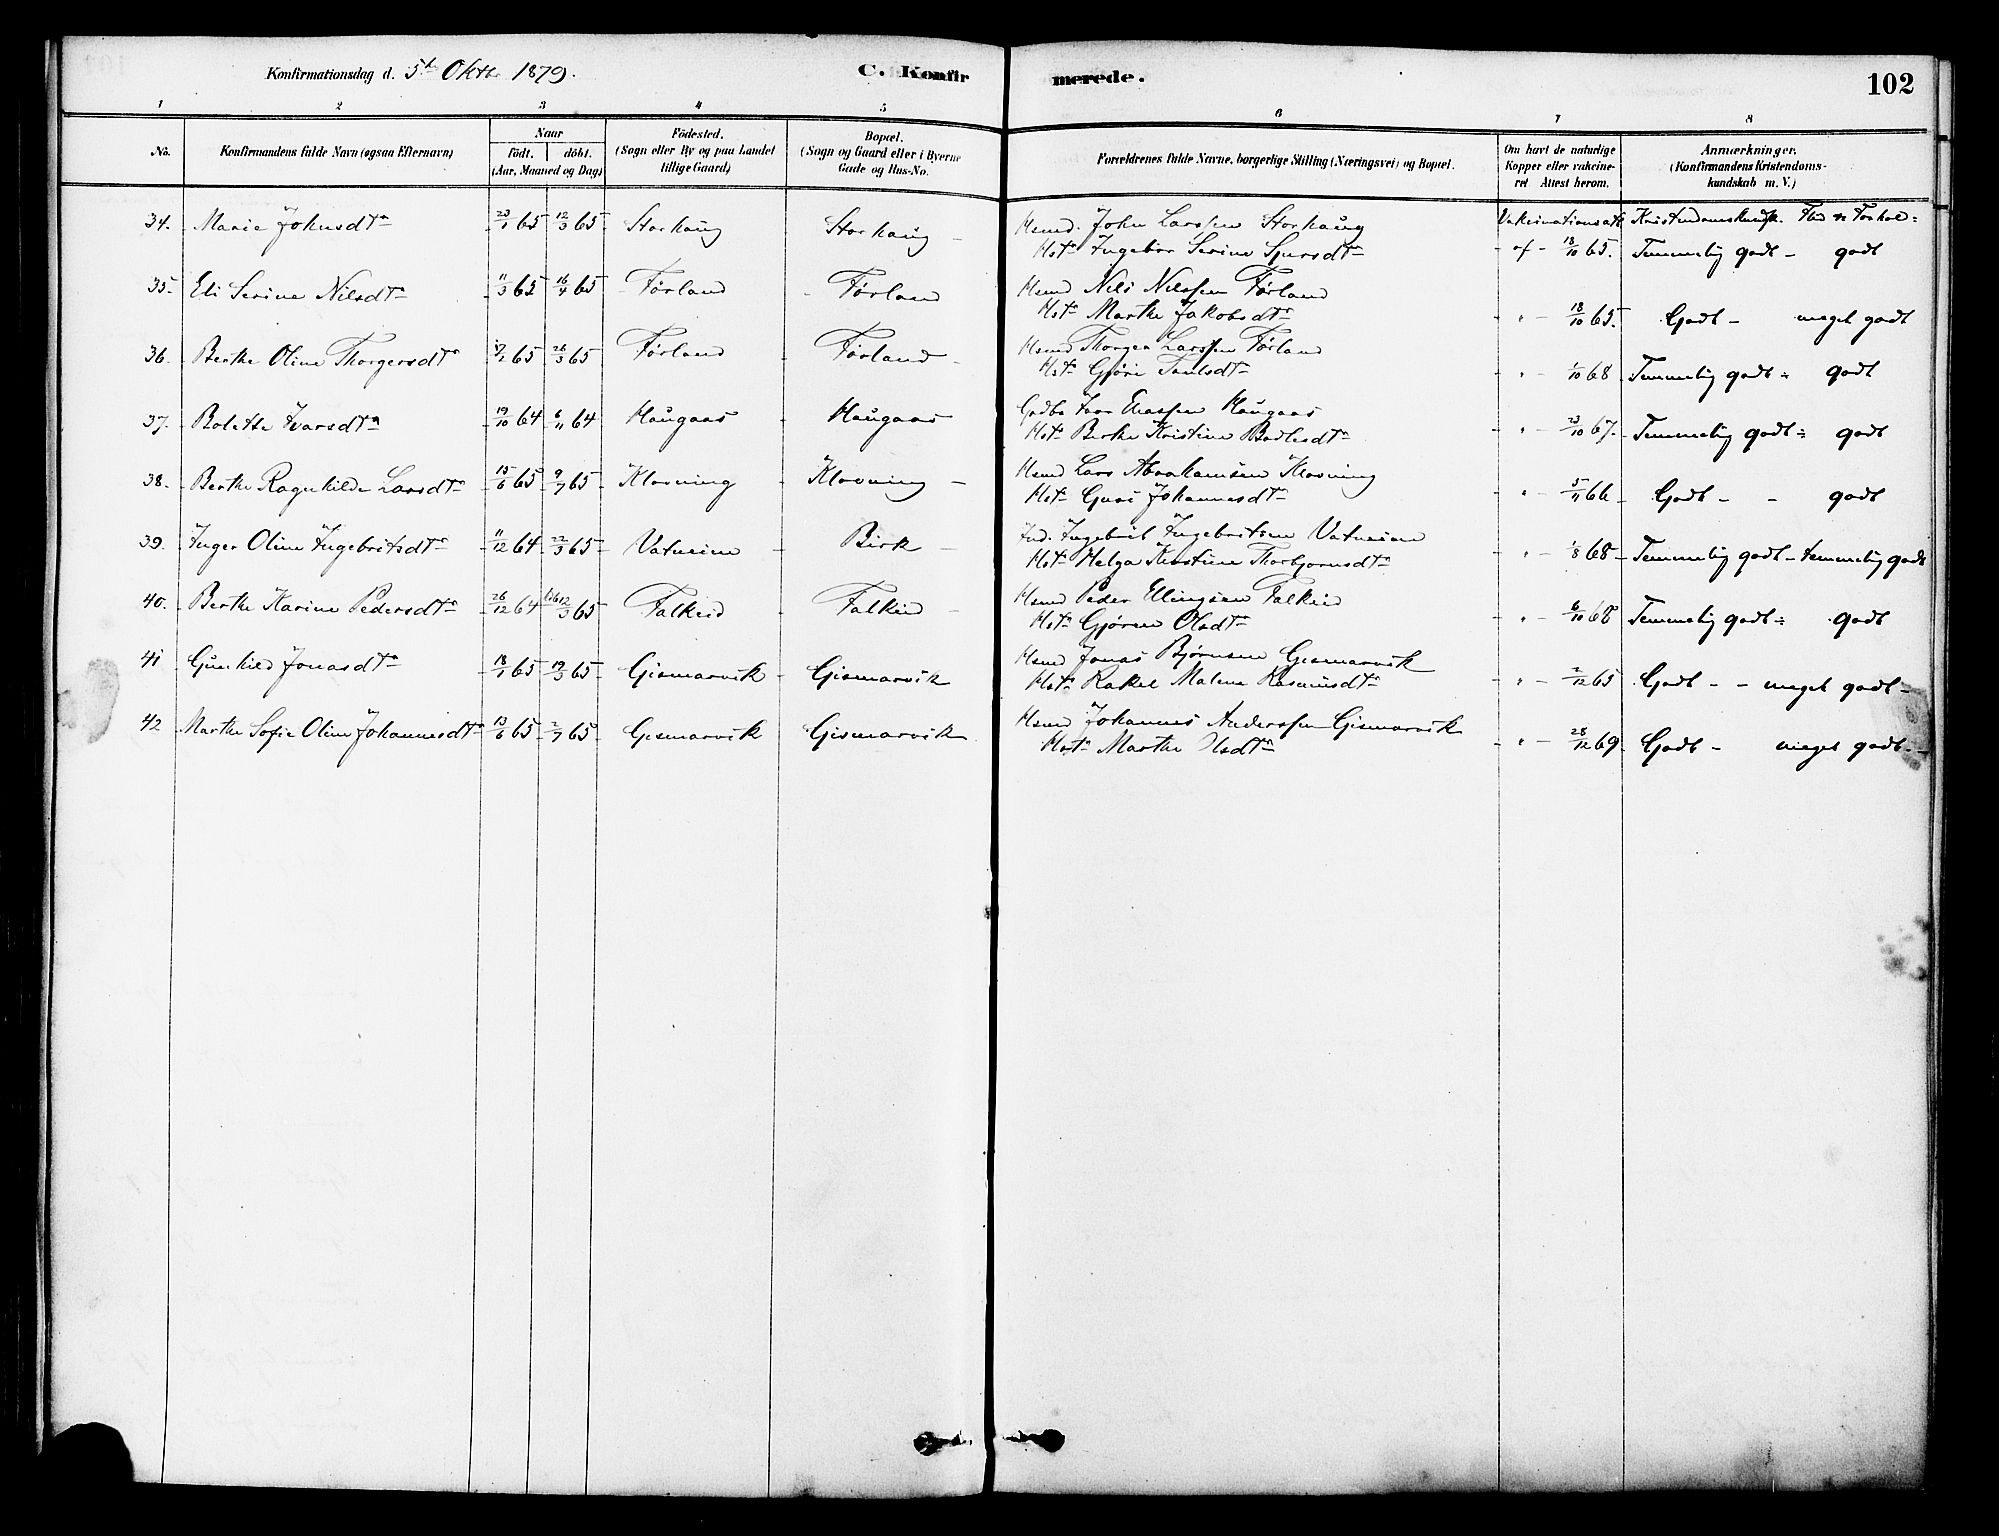 Konfirmationsdag d. 5te Oktr 1879.
C. Konfir merede.
102
1 2 3 4 5 6 7 8
No. Konfirmandens fulde Navn (ogsaa Efternavn) Naar Födt. döbt. (Aar, Maaned og Dag) Födested. (Sogn eller By og paa Landet tillige Gaard) Bopæl. (Sogn og Gaard eller i Byerne Gade og Hus-No. Forældrenes fulde Navne, borgerlige Stilling (Næringsvei) og Bopæl. Om havt de naturlige Kopper eller vakcineret Attest herom. Anmærkninger. (Konfirmandens Kristendomskundskab m. V.)
34. Marie Johnsdtr 23/1 65 12/3 65 Storhaug Storhaug Hsmd. John Larssen Storhaug Vakcinationsatt. Kristendomskundsk. Flid og Forhol=
Hst. Ingebor Serine Sjursdtr - af - 18/10 65. Temmelig godt - godt
35. Eli Serine Nilsdtr 11/3 65 16/4 65 Førland Førland Hsmd Nils Nilssen Førland
Hst. Marthe Jakobsdtr - " - 18/10 65. Godt - meget godt
36. Berthe Oline Thorgersdtr 17/2 65 26/3 65 Førland Førland Hsmd Thorger Larssen Førland
Hst. Gjøri Paulsdtr - " - 1/10 68 Temmelig godt - godt
37. Bolette Ivarsdtr 19/10 64 6/11 64 Haugaas Haugaas Gdbr Ivar Eliassen Haugaas
Hst. Berthe Kristine Bodlesdtr - " - 23/10 67. Temmelig godt - godt
38. Berthe Ragnhilde Larsdtr 15/6 65 9/7 65 Klovning Klovning Hsmd Lars Abrahamsen Klovning
Hst. Guri Johannesdtr - " - 5/11 66 Godt - - godt
39. Inger Oline Ingebritsdtr 11/12 64 22/3 65 Vatneim Birk Ind. Ingebrit Ingebritsen Vatneim
Hst. Helga Kristine Thorbjørnsdtr - " - 1/8 68 Temmelig godt - temmelig godt
40. Berthe Karine Pedersdtr 26/12 64 12/3 65 Falkeid Falkeid Hsmd Peder Ellingsen Falkeid
Hst. Gjøren Olsdtr - " - 6/10 68 Temmelig godt - godt
41 Gunhild Jonasdtr 18/1 65 19/3 65 Gismarvik Gismarvik Hsmd Jonas Bjørnsen Gismarvik
Hst. Rakel Malene Rasmusdtr - " - 2/12 65 Godt - - meget godt -
42 Marthe Sofie Oline Johannesdtr 13/6 65 2/7 65 Gismarvik Gismarvik Hsmd Johannes Anderssen Gismarvik
Hst. Marthe Olsdtr - " - 28/12 69 Godt - meget godt -